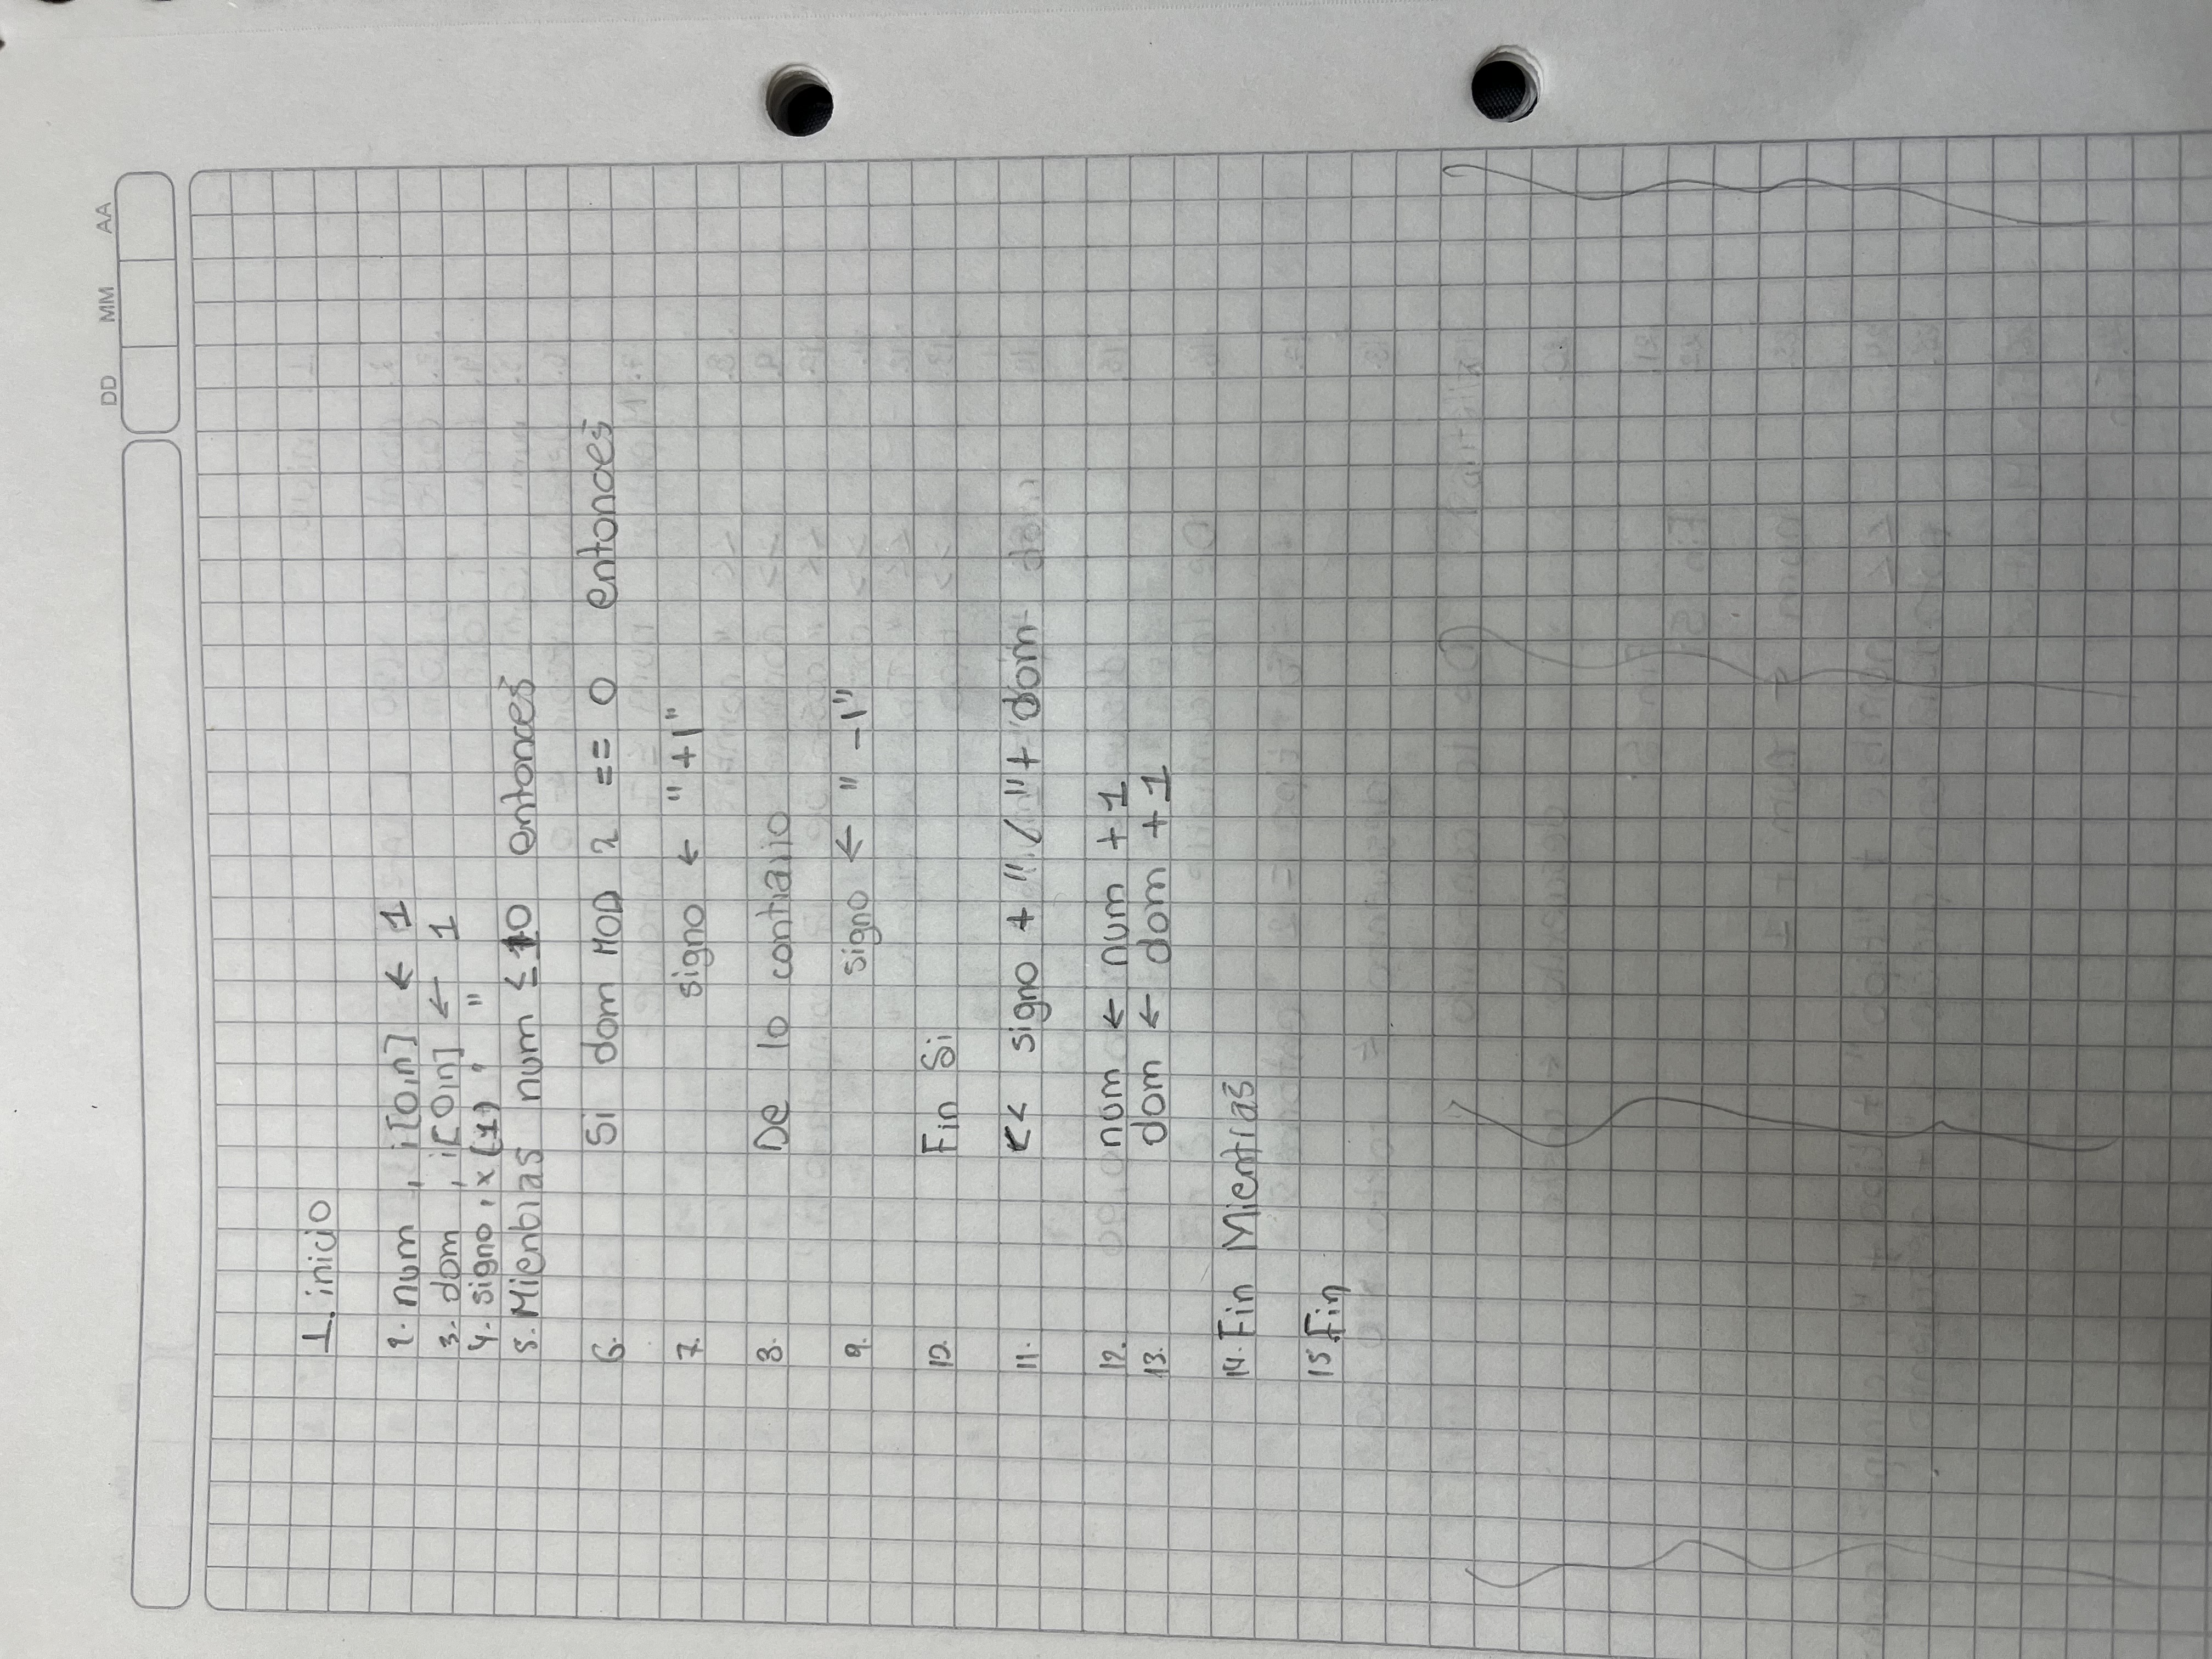 DD MM AA
1. inicio
2. num , i[0,n] ← 1
3. dom , i[0,n] ← 1
4. signo , x(1) " "
5. Mientras num ≤ 10 entonces
6. Si dom MOD 2 == 0 entonces
7. signo ← "+1"
8. De lo contrario
9. signo ← "-1"
10. Fin Si
11. << signo + "/"+ dom
12. num ← num +1
13. dom ← dom +1
14. Fin Mientras
15 Fin